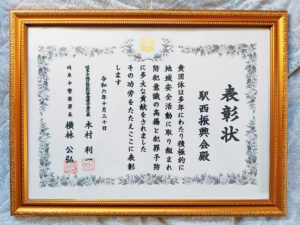 表彰状
駅西振興会殿
貴団体は多年にわたり積極的に
地域安全活動に取り組まれ
防犯意識の高揚と犯罪予防
に多大な貢献をされました
その功労をたたえここに表彰
します
令和六年十月三十日
木村利一
岐阜中警察署長 横林公弘